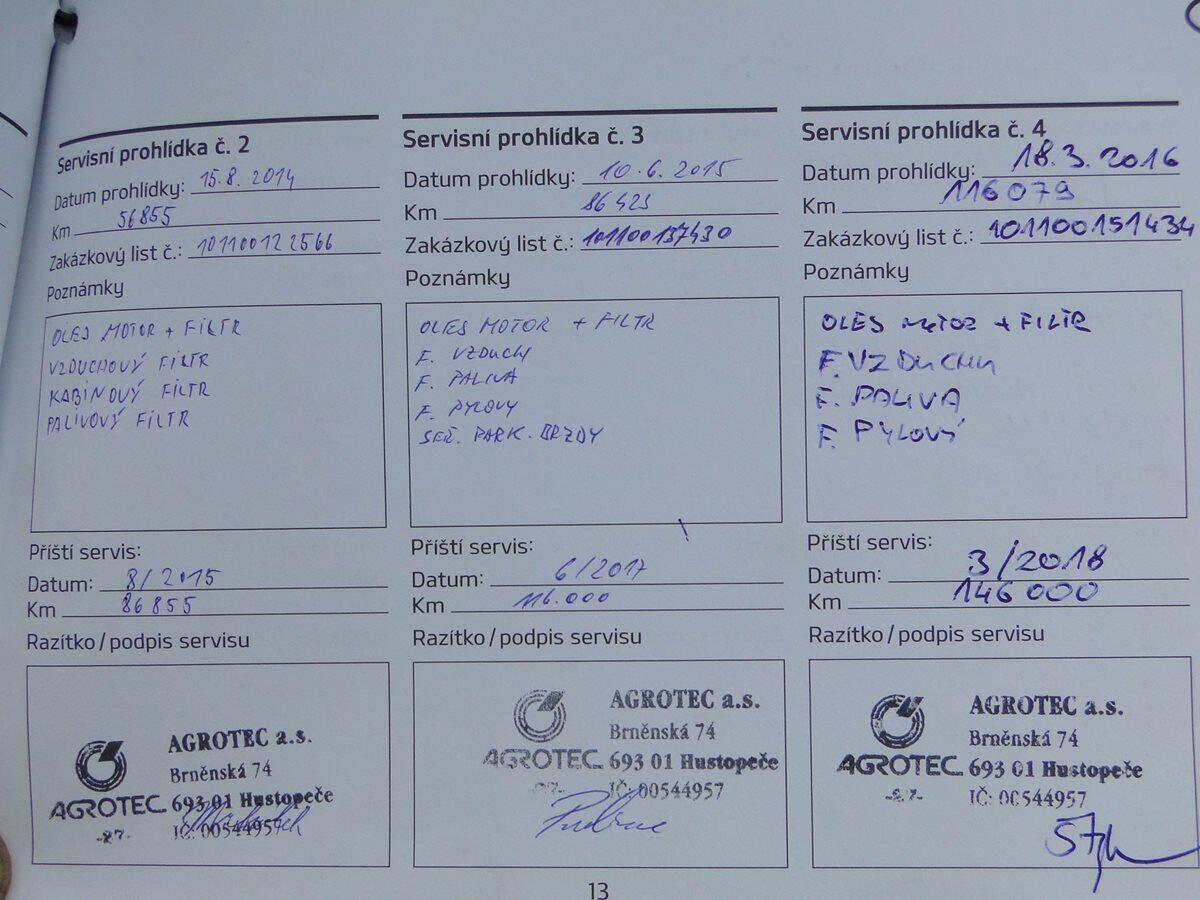 Servisní prohlídka č. 2
Datum prohlídky: 15.8. 2014
Km 56855
Zakázkový list č.: 101100122566
Poznámky
OLEJ MOTOR + FILTR
VZDUCHOVÝ FILTR
KABINOVÝ FILTR
PALIVOVÝ FILTR
Příští servis:
Datum: 8/2015
Km 86855
Razítko/podpis servisu
AGROTEC a.s.
Brněnská 74
AGROTEC 693 01 Hustopeče
-27- IČ: 00544957
Servisní prohlídka č. 3
Datum prohlídky: 10.6. 2015
Km 86425
Zakázkový list č.: 101100137430
Poznámky
OLEJ MOTOR + FILTR
F. VZDUCHU
F. PALIVA
F. PYLOVÝ
SEŘ. PARK. BRZDY
Příští servis:
Datum: 6/2017
Km 116.000
Razítko/podpis servisu
AGROTEC a.s.
Brněnská 74
AGROTEC 693 01 Hustopeče
-27- IČ: 00544957
Servisní prohlídka č. 4
Datum prohlídky: 18.3. 2016
Km 116079
Zakázkový list č.: 101100151434
Poznámky
OLEJ MOTOR + FILTR
F. VZDUCHU
F. PALIVA
F. PYLOVÝ
Příští servis:
Datum: 3/2018
Km 146000
Razítko/podpis servisu
AGROTEC a.s.
Brněnská 74
AGROTEC 693 01 Hustopeče
-27- IČ: 00544957
13